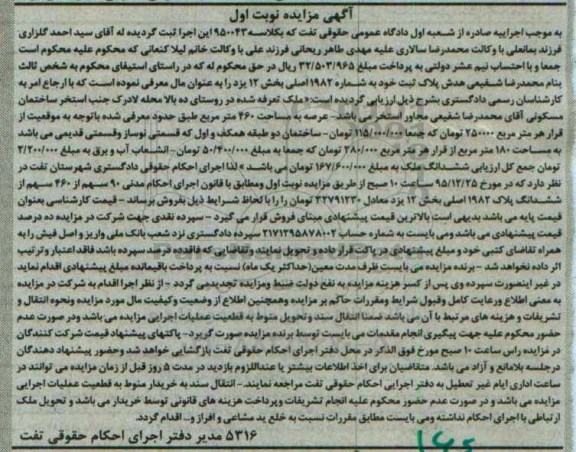 آگهی مزایده نوبت اول
به موجب اجراییه صادره از شعبه اول دادگاه عمومی حقوقی تفت که بکلاسه ۹۵۰۰۴۳ این اجرا ثبت گردیده له آقای سید احمد گلزاری
فرزند بمانعلی با وکالت محمدرضا سالاری علیه مهدی طاهر ریحانی فرزند علی با وکالت خانم لیلا کنعانی که محکوم علیه محکوم است
جمعا و با احتساب نیم عشر دولتی به پرداخت مبلغ ۳۲/۵۰۳/۹۶۵ ریال در حق محکوم له که در راستای استیفای محکوم به شخص ثالث
بنام محمدرضا شفیعی هدش پلاک ثبت خود به شماره ۱۹۸۲ اصلی بخش ۱۲ یزد را به عنوان مال معرفی نموده است که با ارجاع امر به
کارشناسان رسمی دادگستری بشرح ذیل ارزیابی گردیده است: «ملک تعرفه شده در روستای ده بالا محله لادرک جنب استخر ساختمان
مسکونی آقای محمدرضا شفیعی مجاور استخر می باشد- عرصه به مساحت ۴۶۰ متر مربع طبق حدود معرفی شده باتوجه به موقعیت از
قرار هر متر مربع ۲۵۰۰۰۰ تومان که جمعا ۱۱۵/۰۰۰/۰۰۰ تومان- ساختمان دو طبقه همکف و اول که قسمتی نوساز وقسمتی قدیمی می باشد
به مساحت ۱۸۰ متر مربع از قرار هر متر مربع ۲۸۰/۰۰۰ تومان که جمعا به مبلغ ۵۰/۴۰۰/۰۰۰ تومان- انشعاب آب و برق به مبلغ ۲/۲۰۰/۰۰۰
تومان جمع کل ارزیابی ششدانگ ملک به مبلغ ۱۶۷/۶۰۰/۰۰۰ تومان می باشد» لذا اجرای احکام حقوقی دادگستری شهرستان تفت در
نظر دارد که در مورخ ۹۵/۱۲/۲۵ ساعت ۱۰ صبح از طریق مزایده نوبت اول ومطابق با قانون اجرای احکام مدنی ۹۰ سهم از ۴۶۰ سهم از
ششدانگ پلاک ۱۹۸۲ اصلی بخش ۱۲ یزد معادل ۳۲۷۹۱۳۰۴ تومان را را با لحاظ شرایط ذیل بفروش برساند - قیمت کارشناسی بعنوان
قیمت پایه می باشد بدیهی است بالاترین قیمت پیشنهادی مبنای فروش قرار می گیرد - سپرده نقدی جهت شرکت در مزایده ده درصد
قیمت پیشنهادی می باشد ومی بایست به شماره حساب ۲۱۷۱۲۹۵۸۷۸۰۰۲ سپرده دادگستری نزد شعب بانک ملی واریز و اصل فیش را به
همراه تقاضای کتبی خود و مبلغ پیشنهادی در پاکت قرار داده و تحویل نمایند وتقاضایی که فاقدده درصد سپرده باشد فاقد اعتبار وترتیب
اثر داده نخواهد شد - برنده مزایده می بایست ظرف مدت معین(حداکثر یک ماه) نسبت به پرداخت باقیمانده مبلغ پیشنهادی اقدام نماید
در غیر اینصورت سپرده وی پس از کسر هزینه مزایده به نفع دولت ضبط ومزایده تجدیدمی گردد - از نظر اجرا اقدام به شرکت در مزایده
به معنی اطلاع ورعایت کامل وقبول شرایط ومقررات حاکم بر مزایده وهمچنین اطلاع از وضعیت وکیفیت مال مورد مزایده ونحوه انتقال و
تشریفات و هزینه های مرتبط با آن می باشد ضمنا انتقال سند وتحویل منوط به قطعیت عملیات اجرایی مزایده می باشد ودر صورت عدم
حضور محکوم علیه جهت پیگیری انجام مقدمات می بایست توسط برنده مزایده صورت گیرد- پاکتهای پیشنهاد قیمت شرکت کنندگان
در مزایده راس ساعت ۱۰ صبح مورخ فوق الذکر در محل دفتر اجرای احکام حقوقی تفت بازگشایی خواهد شد وحضور پیشنهاد دهندگان
درجلسه بلامانع و آزاد می باشد. متقاضیان برای اخذ اطلاعات بیشتر یا عنداللزوم بازدید در مدت ۵ روز قبل از زمان مزایده می توانند در
ساعت اداری ایام غیر تعطیل به دفتر اجرایی احکام حقوقی تفت مراجعه نمایند.- انتقال سند به خریدار منوط به قطعیت عملیات اجرایی
مزایده می باشد و در صورت عدم حضور محکوم علیه انجام تشریفات وپرداخت هزینه های قانونی توسط خریدار می باشد و تحویل ملک
ارتباطی با اجرای احکام نداشته ومی بایست مطابق مقررات نسبت به خلع ید مشاعی و افراز و... اقدام گردد.
۵۳۱۶ مدیر دفتر اجرای احکام حقوقی تفت